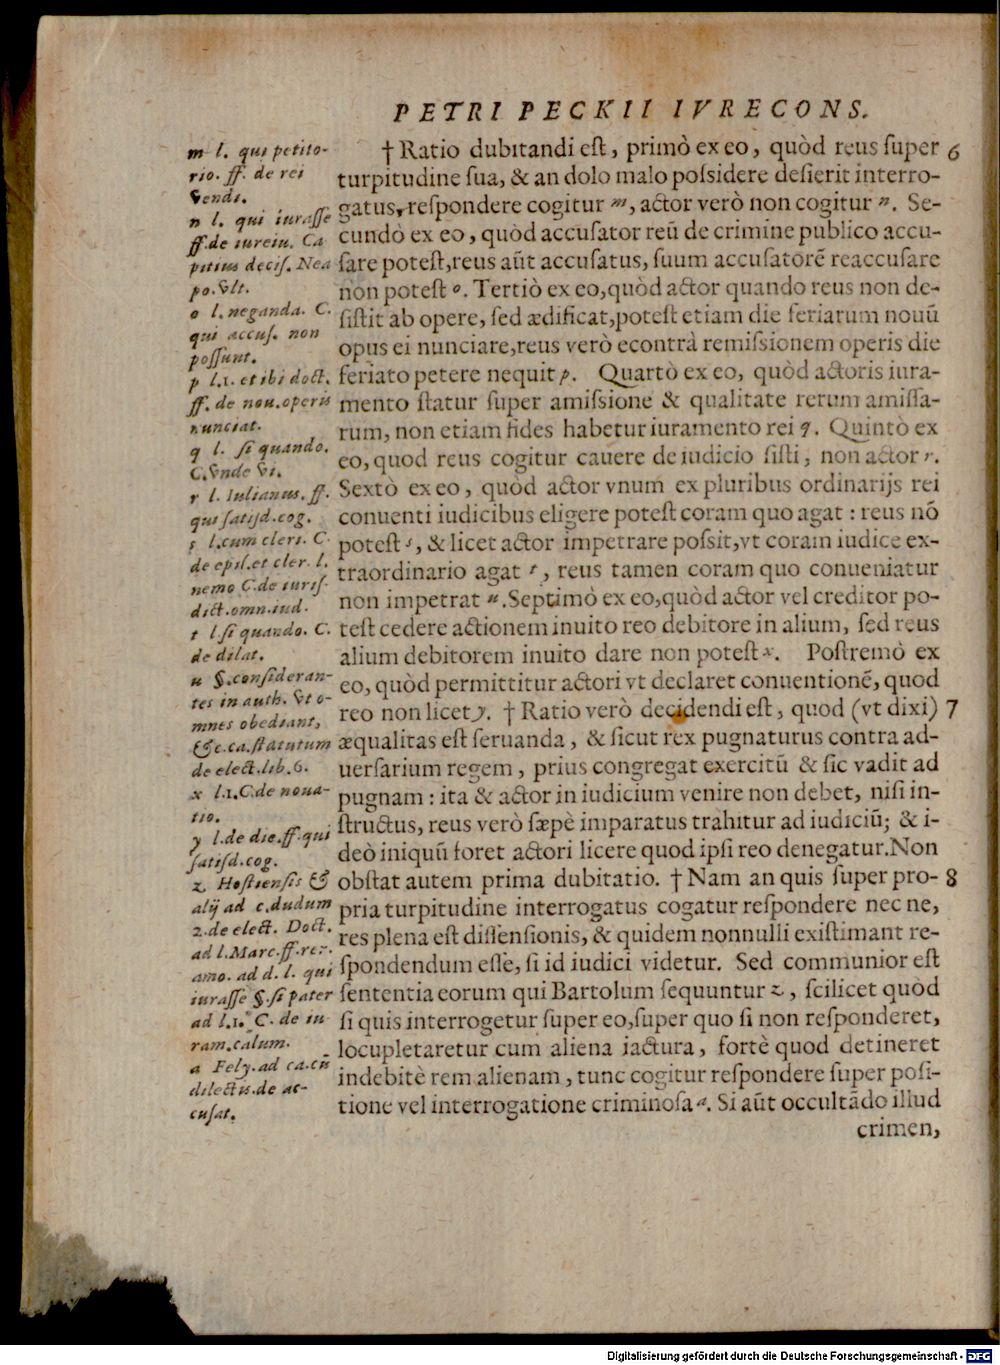 PETRI PECKII IVRECONS.
m l. qui petito-
rio. ff. de rei
vendi.
n l. qui iuraſſe
ff. de iureiu. Ca
pitius deciſ. Nea
po. vlt.
o l. neganda. C.
qui accuſ. non
poſſunt.
p l.1. et ibi doct.
ff. de nou. operis
nunciat.
q l. ſi quando.
C. vnde vi.
r l. Iulianus. ff.
qui ſatiſd. cog.
s l. cum cleri. C.
de epiſ. et cler. l.
nemo C. de iuriſ-
dict. omn. iud.
t l. ſi quando. C.
de dilat.
u §. conſideran-
tes in auth. vt o-
mnes obediant,
& c. ca. ſtatutum
de elect. lib. 6.
x l.1. C. de noua-
tio.
y l. de die. ff. qui
ſatiſd. cog.
z Hoſtienſis &
alij ad c. dudum
2. de elect. Doct.
ad l. Marc. ff. rer.
amo. ad d. l. qui
iuraſſe §. ſi pater
ad l.1. C. de iu-
ram. calum.
a Fely. ad ca. cũ
dilectis. de ac-
cuſat.
† Ratio dubitandi eſt, primò ex eo, quòd reus ſuper 6
turpitudine ſua, & an dolo malo poſsidere deſierit interro-
gatus, reſpondere cogitur m, actor verò non cogitur n. Se-
cundò ex eo, quòd accuſator reũ de crimine publico accu-
ſare poteſt, reus aũt accuſatus, ſuum accuſatorẽ reaccuſare
non poteſt o. Tertiò ex eo, quòd actor quando reus non de-
ſiſtit ab opere, ſed ædificat, poteſt etiam die feriarum nouũ
opus ei nunciare, reus verò econtrà remiſsionem operis die
feriato petere nequit p. Quartò ex eo, quòd actoris iura-
mento ſtatur ſuper amiſsione & qualitate rerum amiſſa-
rum, non etiam fides habetur iuramento rei q. Quintò ex
eo, quod reus cogitur cauere de iudicio ſiſti, non actor r.
Sextò ex eo, quòd actor vnum ex pluribus ordinarijs rei
conuenti iudicibus eligere poteſt coram quo agat : reus nõ
poteſt s, & licet actor impetrare poſsit, vt coram iudice ex-
traordinario agat t, reus tamen coram quo conueniatur
non impetrat u. Septimò ex eo, quòd actor vel creditor po-
teſt cedere actionem inuito reo debitore in alium, ſed reus
alium debitorem inuito dare non poteſt x. Poſtremò ex
eo, quòd permittitur actori vt declaret conuentionẽ, quod
reo non licet y. † Ratio verò decidendi eſt, quod (vt dixi) 7
æqualitas eſt ſeruanda, & ſicut rex pugnaturus contra ad-
uerſarium regem, prius congregat exercitũ & ſic vadit ad
pugnam : ita & actor in iudicium venire non debet, niſi in-
ſtructus, reus verò ſæpè imparatus trahitur ad iudiciũ; & i-
deò iniquũ foret actori licere quod ipſi reo denegatur. Non
obſtat autem prima dubitatio. † Nam an quis ſuper pro- 8
pria turpitudine interrogatus cogatur reſpondere nec ne,
res plena eſt diſſenſionis, & quidem nonnulli exiſtimant re-
ſpondendum eſſe, ſi id iudici videtur. Sed communior eſt
ſententia eorum qui Bartolum ſequuntur z, ſcilicet quòd
ſi quis interrogetur ſuper eo, ſuper quo ſi non reſponderet,
locupletaretur cum aliena iactura, fortè quod detineret
indebitè rem alienam, tunc cogitur reſpondere ſuper poſi-
tione vel interrogatione criminoſa a. Si aũt occultãdo illud
crimen,
Digitalisierung gefördert durch die Deutsche Forschungsgemeinschaft - DFG